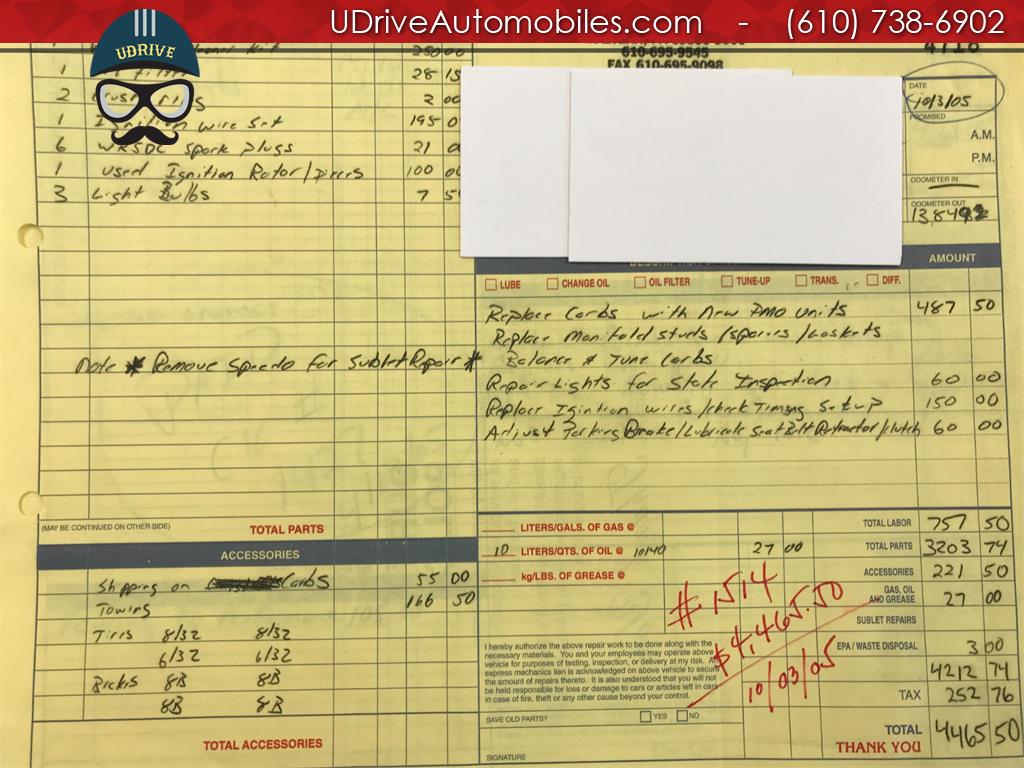 UDriveAutomobiles.com - (610) 738-6902
UDRIVE
610-695-9545
FAX 610-695-9098
4718
250 00
1 28 15
2 2 00
1 Ignition wire set 195 0
6 WR5DC spark plugs 21 0
1 used Ignition Rotor/Pieces 100 00
3 Light Bulbs 7 5
DATE
10/3/05
PROMISED
A.M.
P.M.
ODOMETER IN
ODOMETER OUT
138492
AMOUNT
LUBE CHANGE OIL OIL FILTER TUNE-UP TRANS. DIFF.
Replace Carbs with New PMO units 487 50
Replace Manifold studs /spacers /Gaskets
Note * Remove Speedo for Sublet Repair *
Balance & Tune Carbs
Repair Lights for State Inspection 60 00
Replace Igintion wires /check Timing Setup 150 00
Adjust Parking Brake/Lubricate Seat Belt Retractor/clutch 60 00
(MAY BE CONTINUED ON OTHER SIDE) TOTAL PARTS
ACCESSORIES
Shipping on Carbs 55 00
Towing 166 50
Tires 8/32 8/32
6/32 6/32
8B 8B
8B 8B
TOTAL ACCESSORIES
LITERS/GALS. OF GAS @
10 LITERS/QTS. OF OIL @ 10/40 27 00
kg/LBS. OF GREASE @
# 1514
$4,465.50
10/03/05
I hereby authorize the above repair work to be done along with the
necessary materials. You and your employees may operate above
vehicle for purposes of testing, inspection, or delivery at my risk. An
express mechanics lien is acknowledged on above vehicle to secure
the amount of repairs thereto. It is also understood that you will not
be held responsible for loss or damage to cars or articles left in cars
in case of fire, theft or any other cause beyond your control.
SAVE OLD PARTS? YES NO
SIGNATURE
TOTAL LABOR 757 50
TOTAL PARTS 3203 74
ACCESSORIES 221 50
GAS, OIL
AND GREASE 27 00
SUBLET REPAIRS
EPA / WASTE DISPOSAL 3 00
4212 74
TAX 252 76
TOTAL 4465 50
THANK YOU